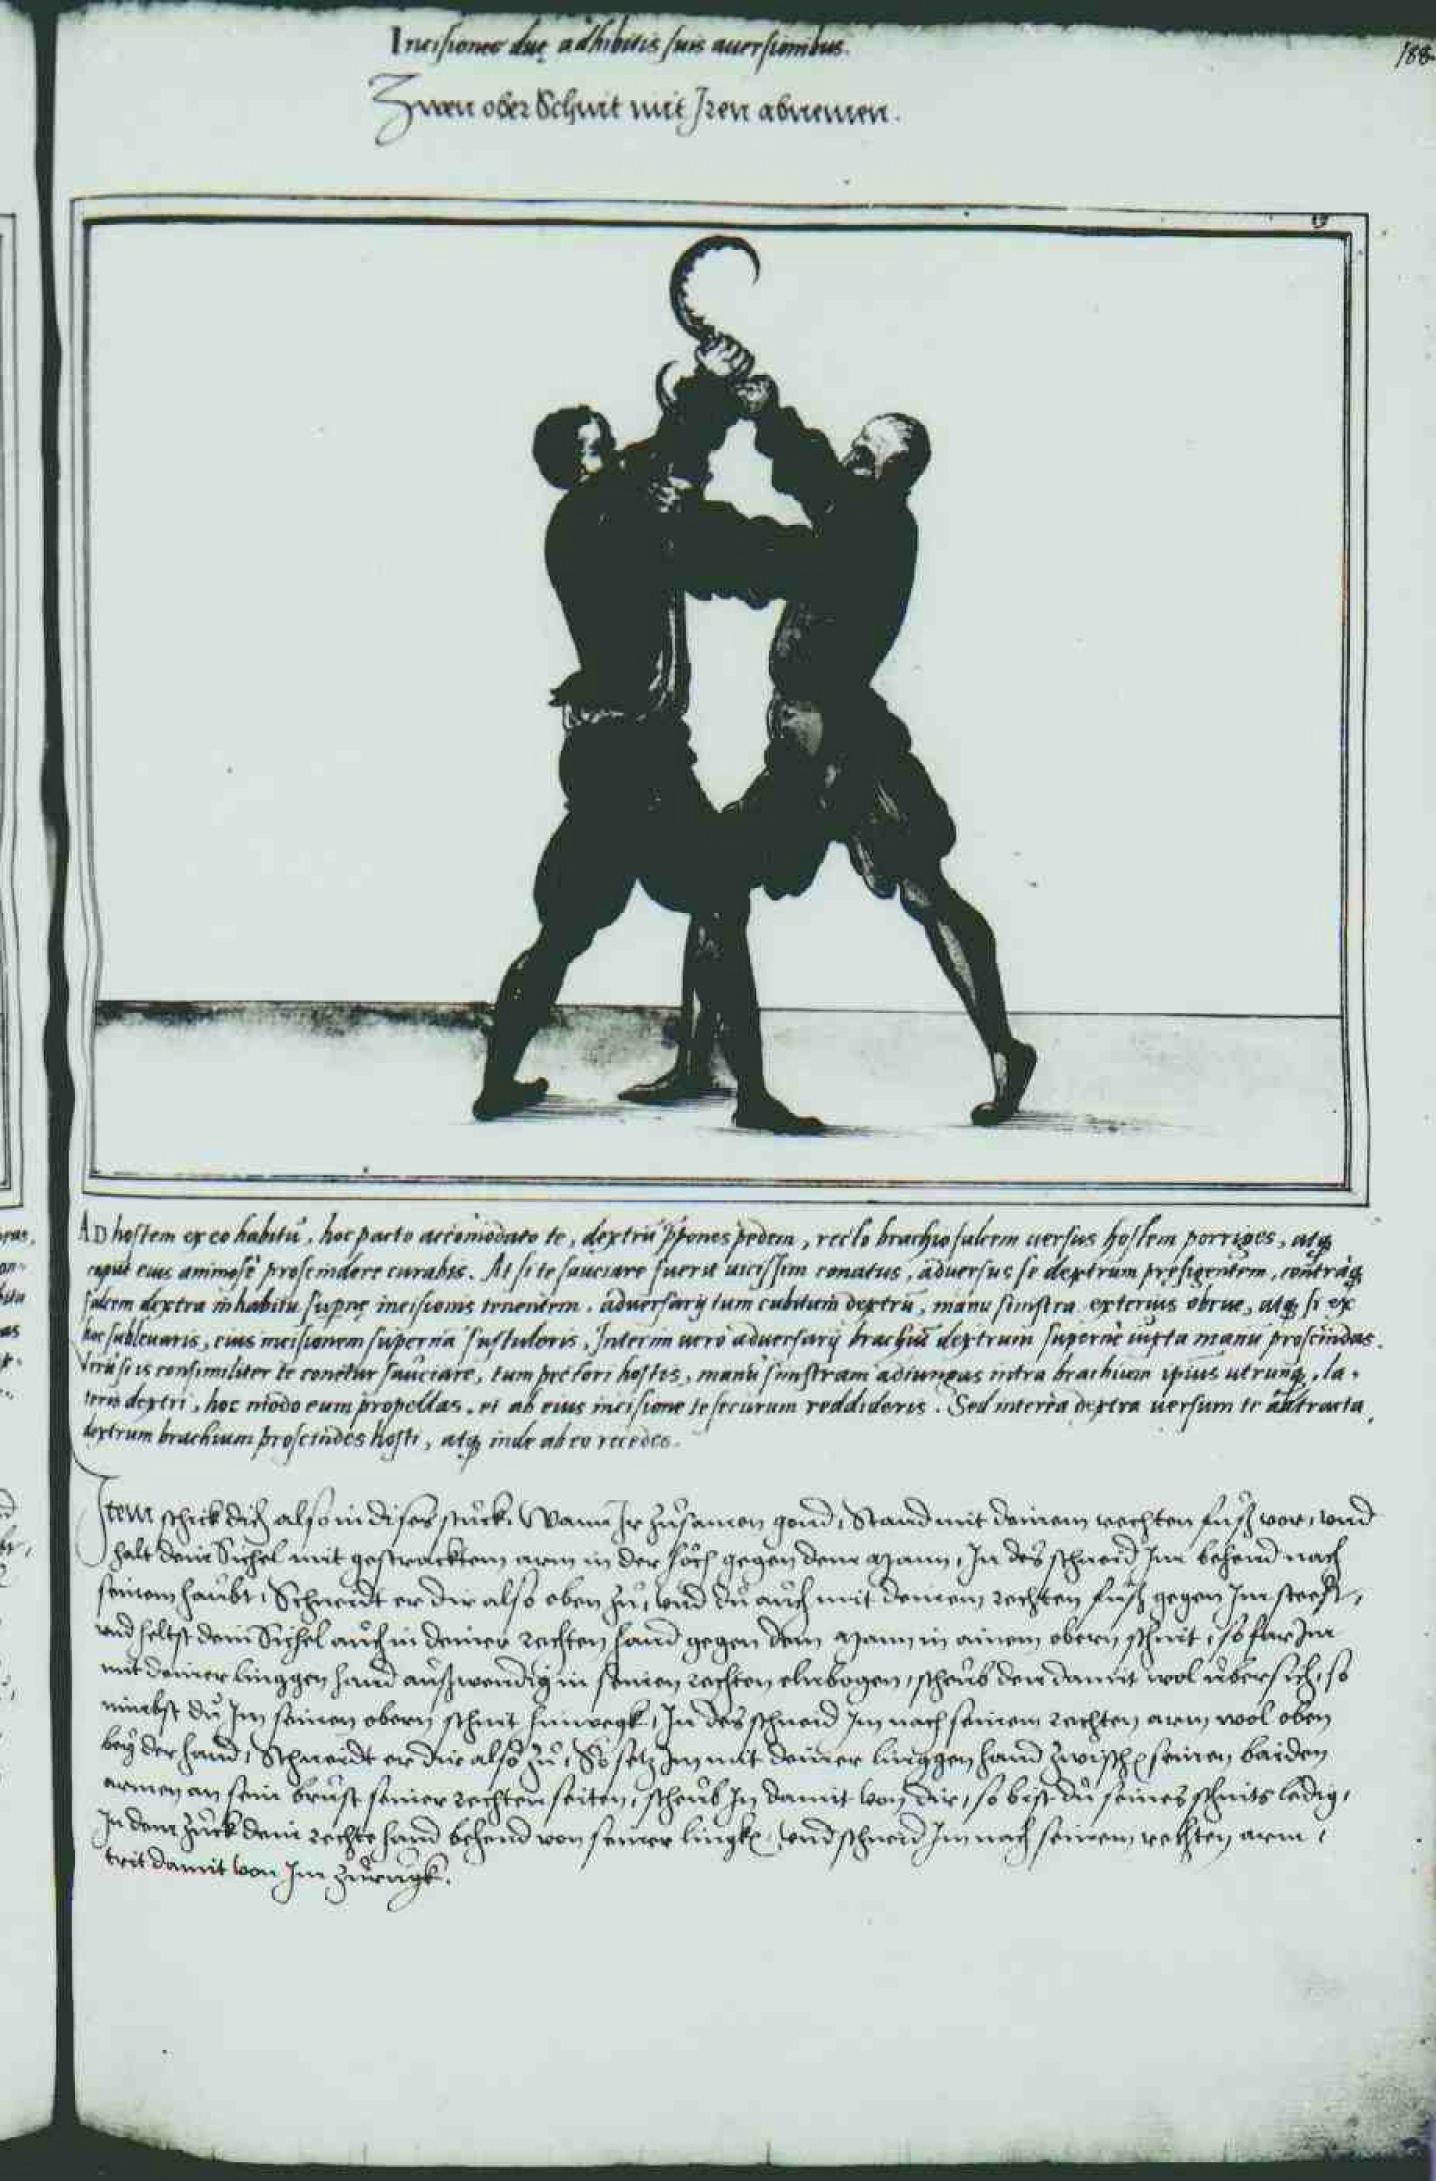 188
Incisiones duę adhibitis suis auersionibus.
Zwen ober Schnit mit Jren abnemen.
AD hostem ex eo habitu, hoc pacto accōmodato te, dextrū p̄pones pedem, recto brachio falcem uersus hostem porriges, atq̨
caput eius animosè proscindere curabis. At si te sauciare fuerit uicissim conatus, aduersus se dextrum prefigentem, contràq̨
falcem dextra in habitu supernę incisionis tenentem, aduersarij tum cubitum dextrū, manu sinistra exterius obrue, atq̨ si ex
hoc subleuaris, eius incisionem supernā sustuleris, Interim uero aduersarij brachiū dextrum supernè iuxta manū proscindas.
Verū si is consimiliter te conetur sauciare, tum pectori hostis, manū sinistram adiungas intra brachium ipsius utrunq̨, la-
teris dextri, hoc modo eum propellas, et ab eius incisione te securum reddideris. Sed interea dextra uersum te attracta,
dextrum brachium proscindes hosti, atq̨ inde ab eo recedes.
Item schick dich also in dises stuck, Wann Ir zusamen gond, Stand mit deinem rechten fuß vor, vnd
halt dein Sichel mit gestracktem arm in der höch gegen dem Mann, In des schneid Im behend nach
seinem haubt, Schneidt er dir also oben zu, vnd du auch mit deinem rechten fuß gegen Im steest,
vnd heltst dein Sichel auch in deiner rechten hand gegen dem Mann in ainem obern schnit, so far Im
mit deiner linggen hand außwendig in seinen rechten elnbogen, scheub den damit wol übersich, so
nimbst du Im seinen obern schnit hinwegk, In des schneid Im nach seinem rechten arm wol oben
bey der hand, Schneidt er dir also zu, So setz Im mit deiner linggen hand zwischen seinen baiden
armen an sein brust seiner rechten seiten, scheub In damit von dir, so bist du seines schnits ledig,
In dem zuck dein rechte hand behend von seiner lingken, vnd schneid Im nach seinem rechten arm,
trit damit von Im zurugk.